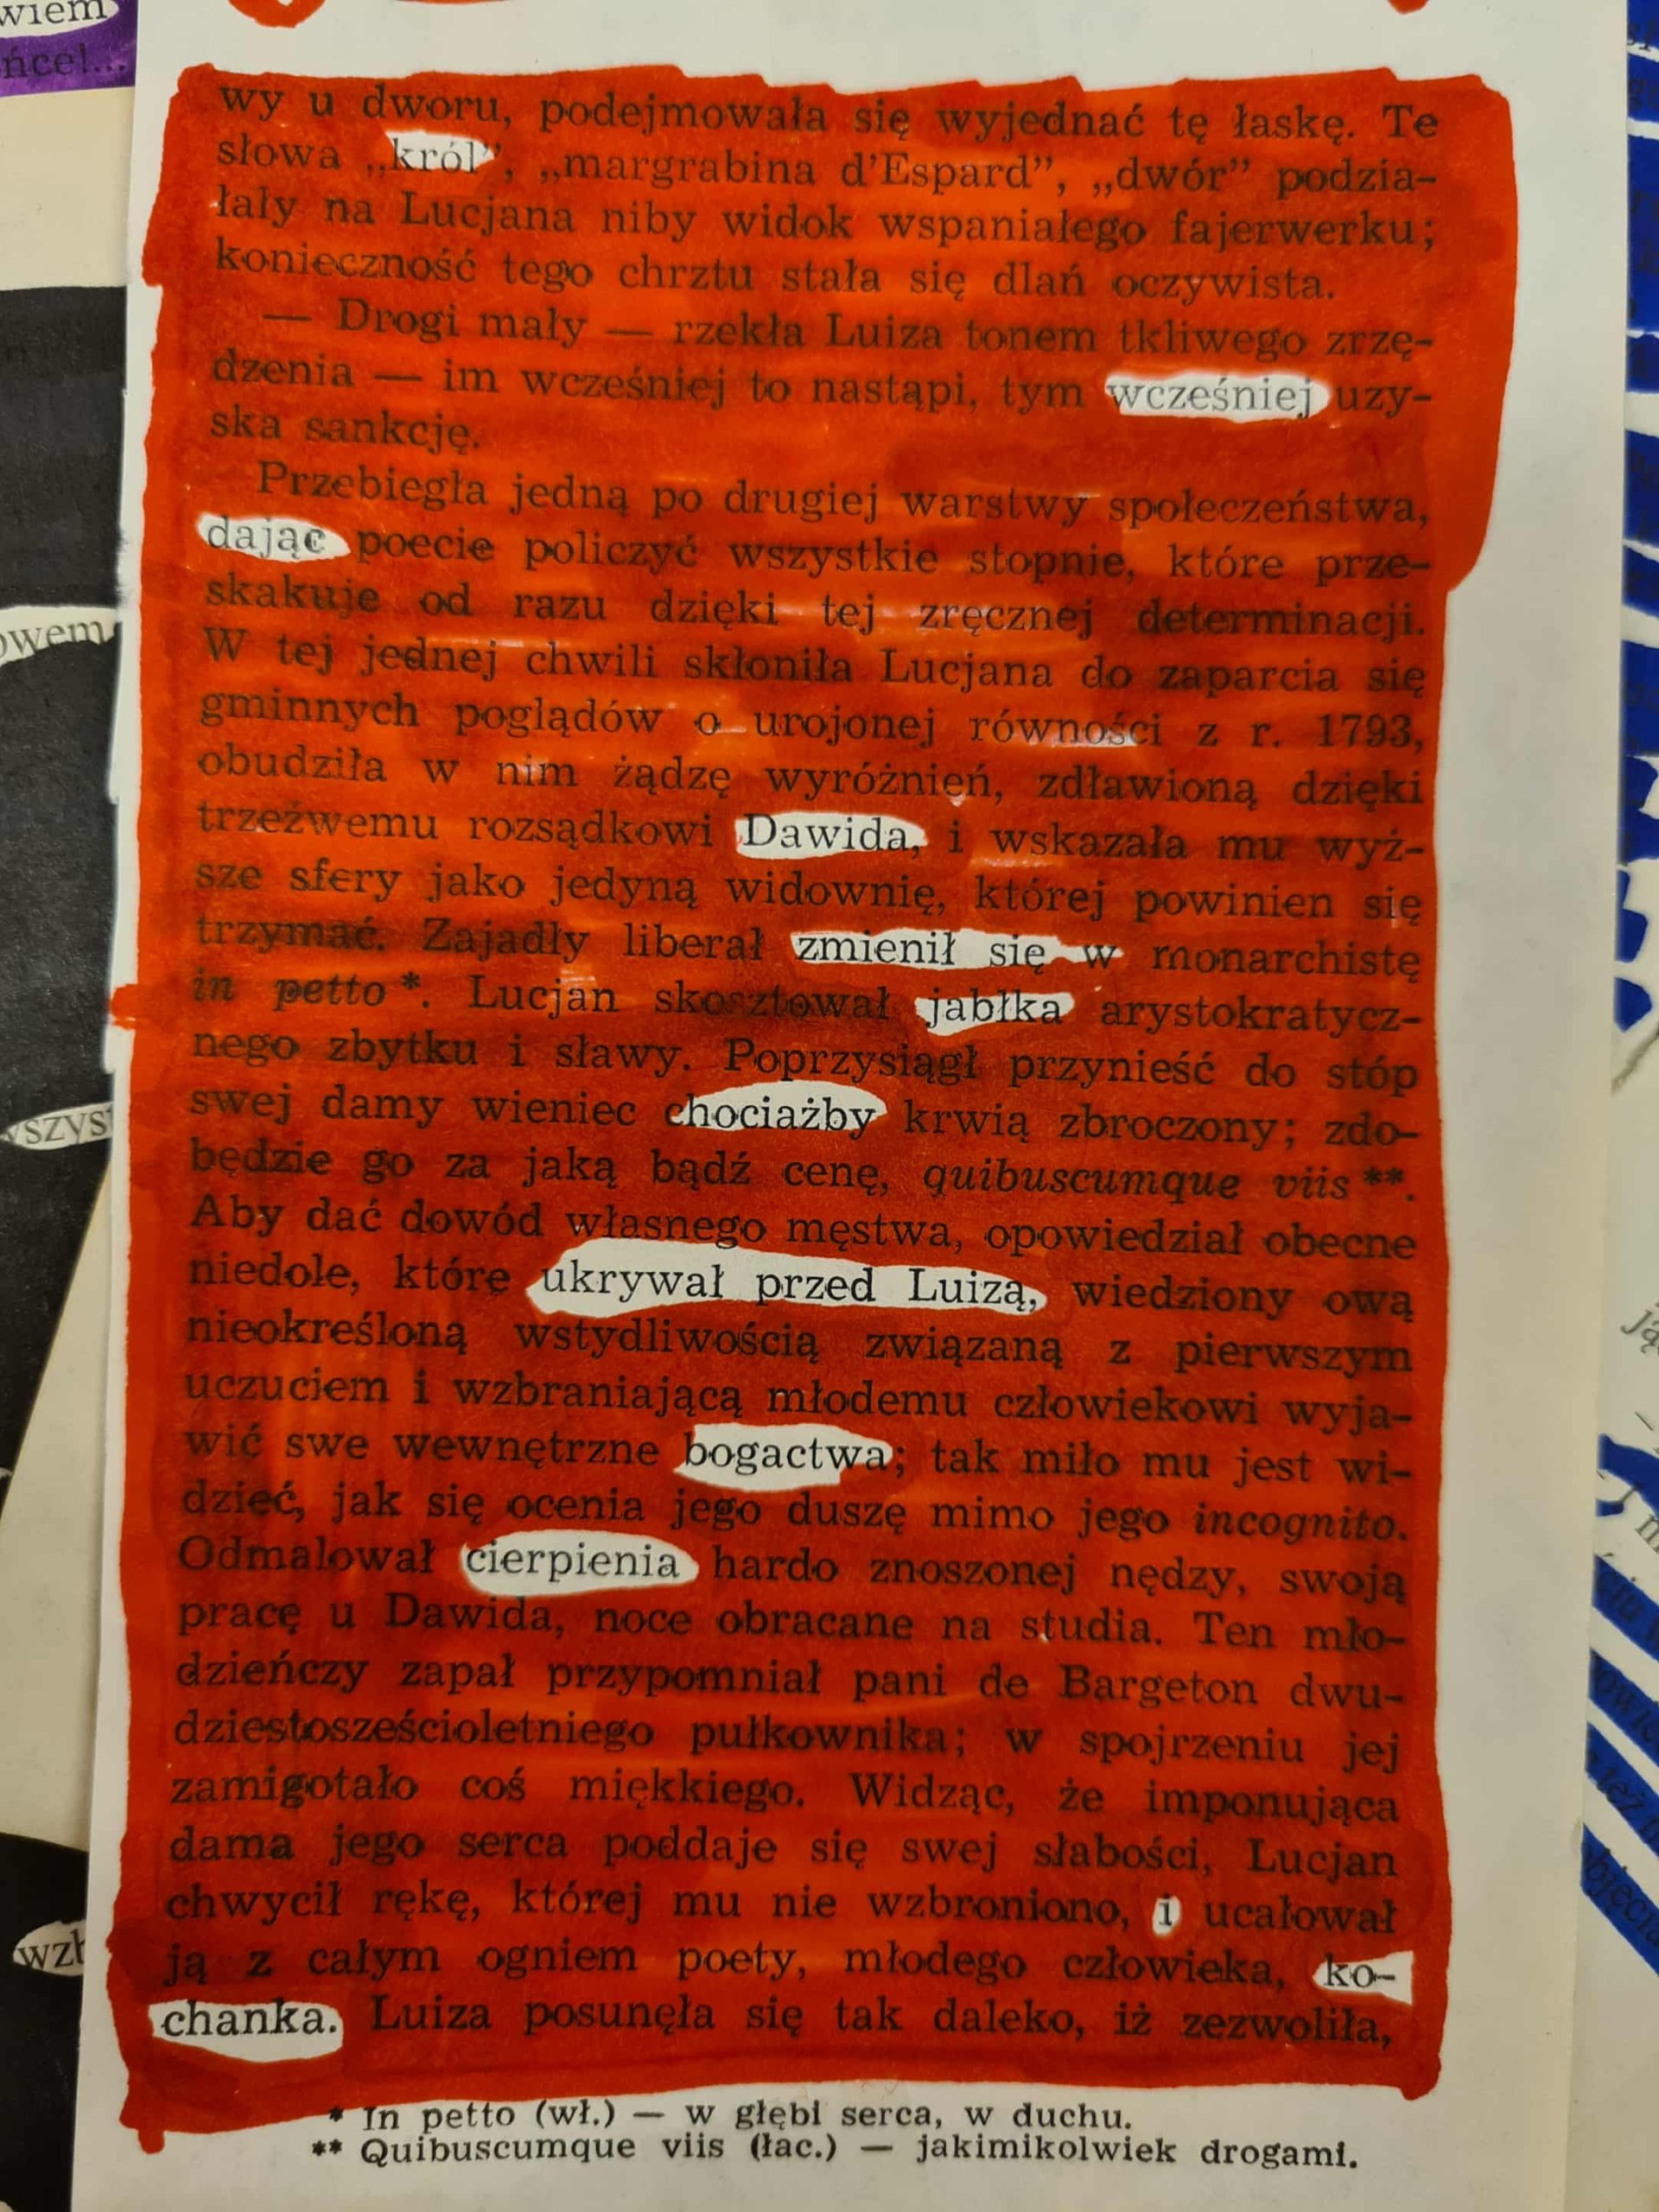 wiem
ńce!...
wy u dworu, podejmowała się wyjednać tę łaskę. Te
słowa „król”, „margrabina d’Espard”, „dwór” podzia-
łały na Lucjana niby widok wspaniałego fajerwerku;
konieczność tego chrztu stała się dlań oczywista.
— Drogi mały — rzekła Luiza tonem tkliwego zrzę-
dzenia — im wcześniej to nastąpi, tym wcześniej uzy-
ska sankcję.
Przebiegła jedną po drugiej warstwy społeczeństwa,
dając poecie policzyć wszystkie stopnie, które prze-
skakuje od razu dzięki tej zręcznej determinacji.
W tej jednej chwili skłoniła Lucjana do zaparcia się
gminnych poglądów o urojonej równości z r. 1793,
obudziła w nim żądzę wyróżnień, zdławioną dzięki
trzeźwemu rozsądkowi Dawida, i wskazała mu wyż-
sze sfery jako jedyną widownię, której powinien się
trzymać. Zajadły liberał zmienił się w monarchistę
in petto *. Lucjan skosztował jabłka arystokratycz-
nego zbytku i sławy. Poprzysiągł przynieść do stóp
swej damy wieniec chociażby krwią zbroczony; zdo-
będzie go za jaką bądź cenę, quibuscumque viis **.
Aby dać dowód własnego męstwa, opowiedział obecne
niedole, które ukrywał przed Luizą, wiedziony ową
nieokreśloną wstydliwością związaną z pierwszym
uczuciem i wzbraniającą młodemu człowiekowi wyja-
wić swe wewnętrzne bogactwa; tak miło mu jest wi-
dzieć, jak się ocenia jego duszę mimo jego incognito.
Odmalował cierpienia hardo znoszonej nędzy, swoją
pracę u Dawida, noce obracane na studia. Ten mło-
dzieńczy zapał przypomniał pani de Bargeton dwu-
dziestosześcioletniego pułkownika; w spojrzeniu jej
zamigotało coś miękkiego. Widząc, że imponująca
dama jego serca poddaje się swej słabości, Lucjan
chwycił rękę, której mu nie wzbroniono, i ucałował
ją z całym ogniem poety, młodego człowieka, ko-
chanka. Luiza posunęła się tak daleko, iż zezwoliła,
* In petto (wł.) — w głębi serca, w duchu.
** Quibuscumque viis (łac.) — jakimikolwiek drogami.